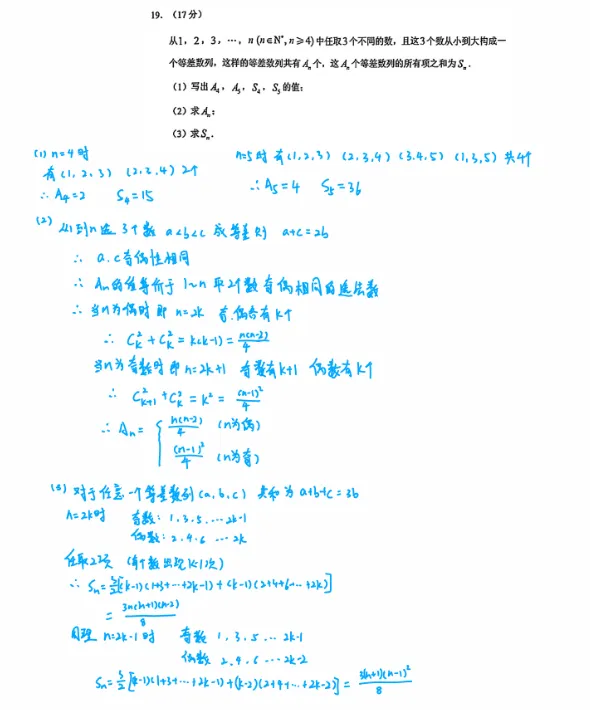 19. (17分)
从1, 2, 3, …, n (n∈N*, n≥4) 中任取3个不同的数, 且这3个数从小到大构成一
个等差数列, 这样的等差数列共有 Aₙ 个, 这 Aₙ 个等差数列的所有项之和为 Sₙ.
(1) 写出 A₄, A₅, S₄, S₅ 的值;
(2) 求 Aₙ;
(3) 求 Sₙ.
(1) n=4时
有 (1, 2, 3) (2, 3, 4) 2个
∴ A₄=2 S₄=15
n=5时 有 (1, 2, 3) (2, 3, 4) (3, 4, 5) (1, 3, 5) 共4个
∴ A₅=4 S₅=36
(2) 从1到n选3个数 a<b<c 成等差 则 a+c=2b
∴ a, c 奇偶性相同
∴ Aₙ的值等价于 1~n 取2个数奇偶相同的选法数
∴ 当n为偶时 即 n=2k 奇.偶各有k个
∴ C²ₖ + C²ₖ = k(k-1) = n(n-2)/4
当n为奇数时 即 n=2k+1 奇数有k+1 偶数有k个
∴ C²ₖ₊₁ + C²ₖ = k² = (n-1)²/4
∴ Aₙ = { n(n-2)/4 (n为偶)
(n-1)²/4 (n为奇)
(3) 对于任意一个等差数列 (a, b, c) 其和为 a+b+c=3b
n=2k时 奇数: 1, 3, 5, … 2k-1
偶数: 2, 4, 6 … 2k
任取2项 (每个数出现k-1次)
∴ Sₙ = 3/2[(k-1)(1+3+…+2k-1) + (k-1)(2+4+6+… +2k)]
= 3n(n+1)(n-2)/8
同理 n=2k-1时 奇数 1, 3, 5 … 2k-1
偶数 2, 4, 6 … 2k-2
Sₙ = 3/2 [(k-1)(1+3+…+2k-1) + (k-2)(2+4+…+2k-2)] = 3(n+1)(n-1)²/8